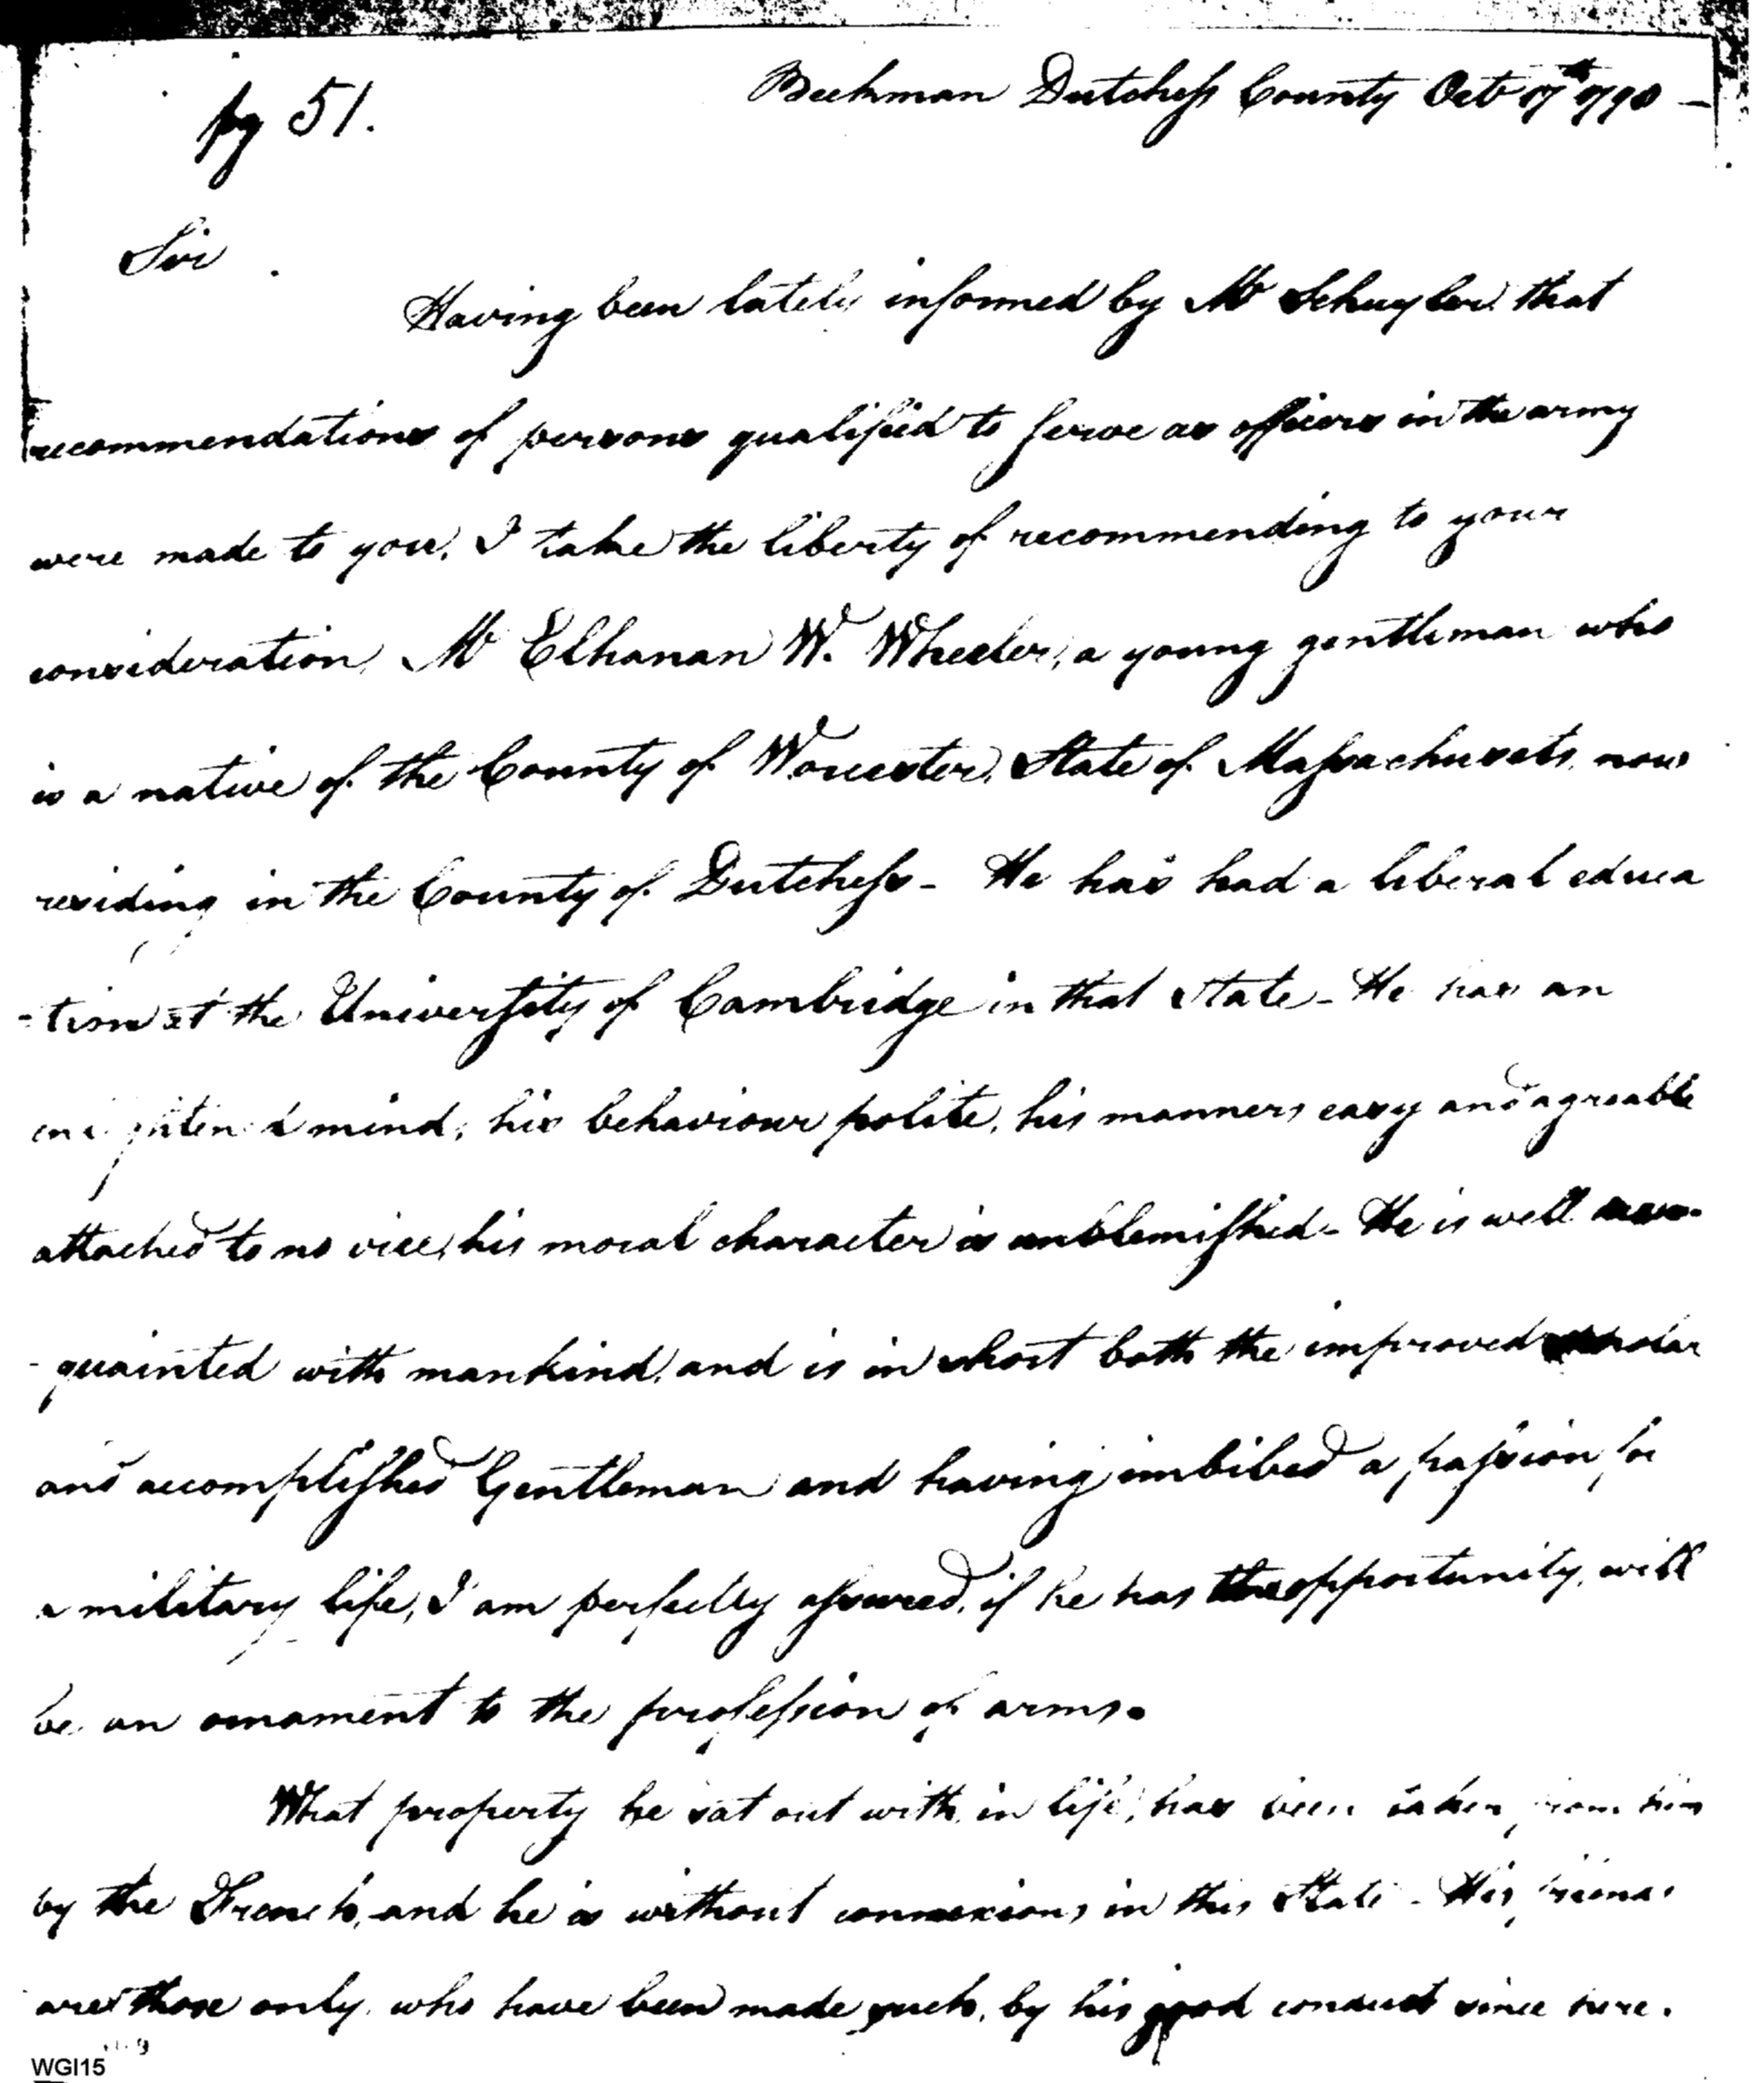 pg 51.
Beekman Dutchess County Octr 17th 1798 —
Sir
Having been lately informed by Mr Schuyler that
recommendations of persons qualified to serve as officers in the army
were made to you, I take the liberty of recommending to your
consideration, Mr Elhanan W. Wheeler, a young gentleman who
is a native of the County of Worcester, State of Massachusets, now
residing in the County of Dutchess - He has had a liberal educa
-tion at the University of Cambridge in that State - He has an
enlighten'd mind, his behaviour polite, his manners easy and agreable
attached to no vice, his moral character is unblemished - He is well
-quainted with mankind, and is in short both the improved scholar
and accomplished Gentleman and having imbibed a passion for
a military life, I am perfectly assured, if he has the opportunity, will
be an ornament to the profession of arms.
What property he sat out with in life, has been taken from him
by the French, and he is without connexions in this State - His friends
are those only who have been made such, by his good conduct since here.
WGI15